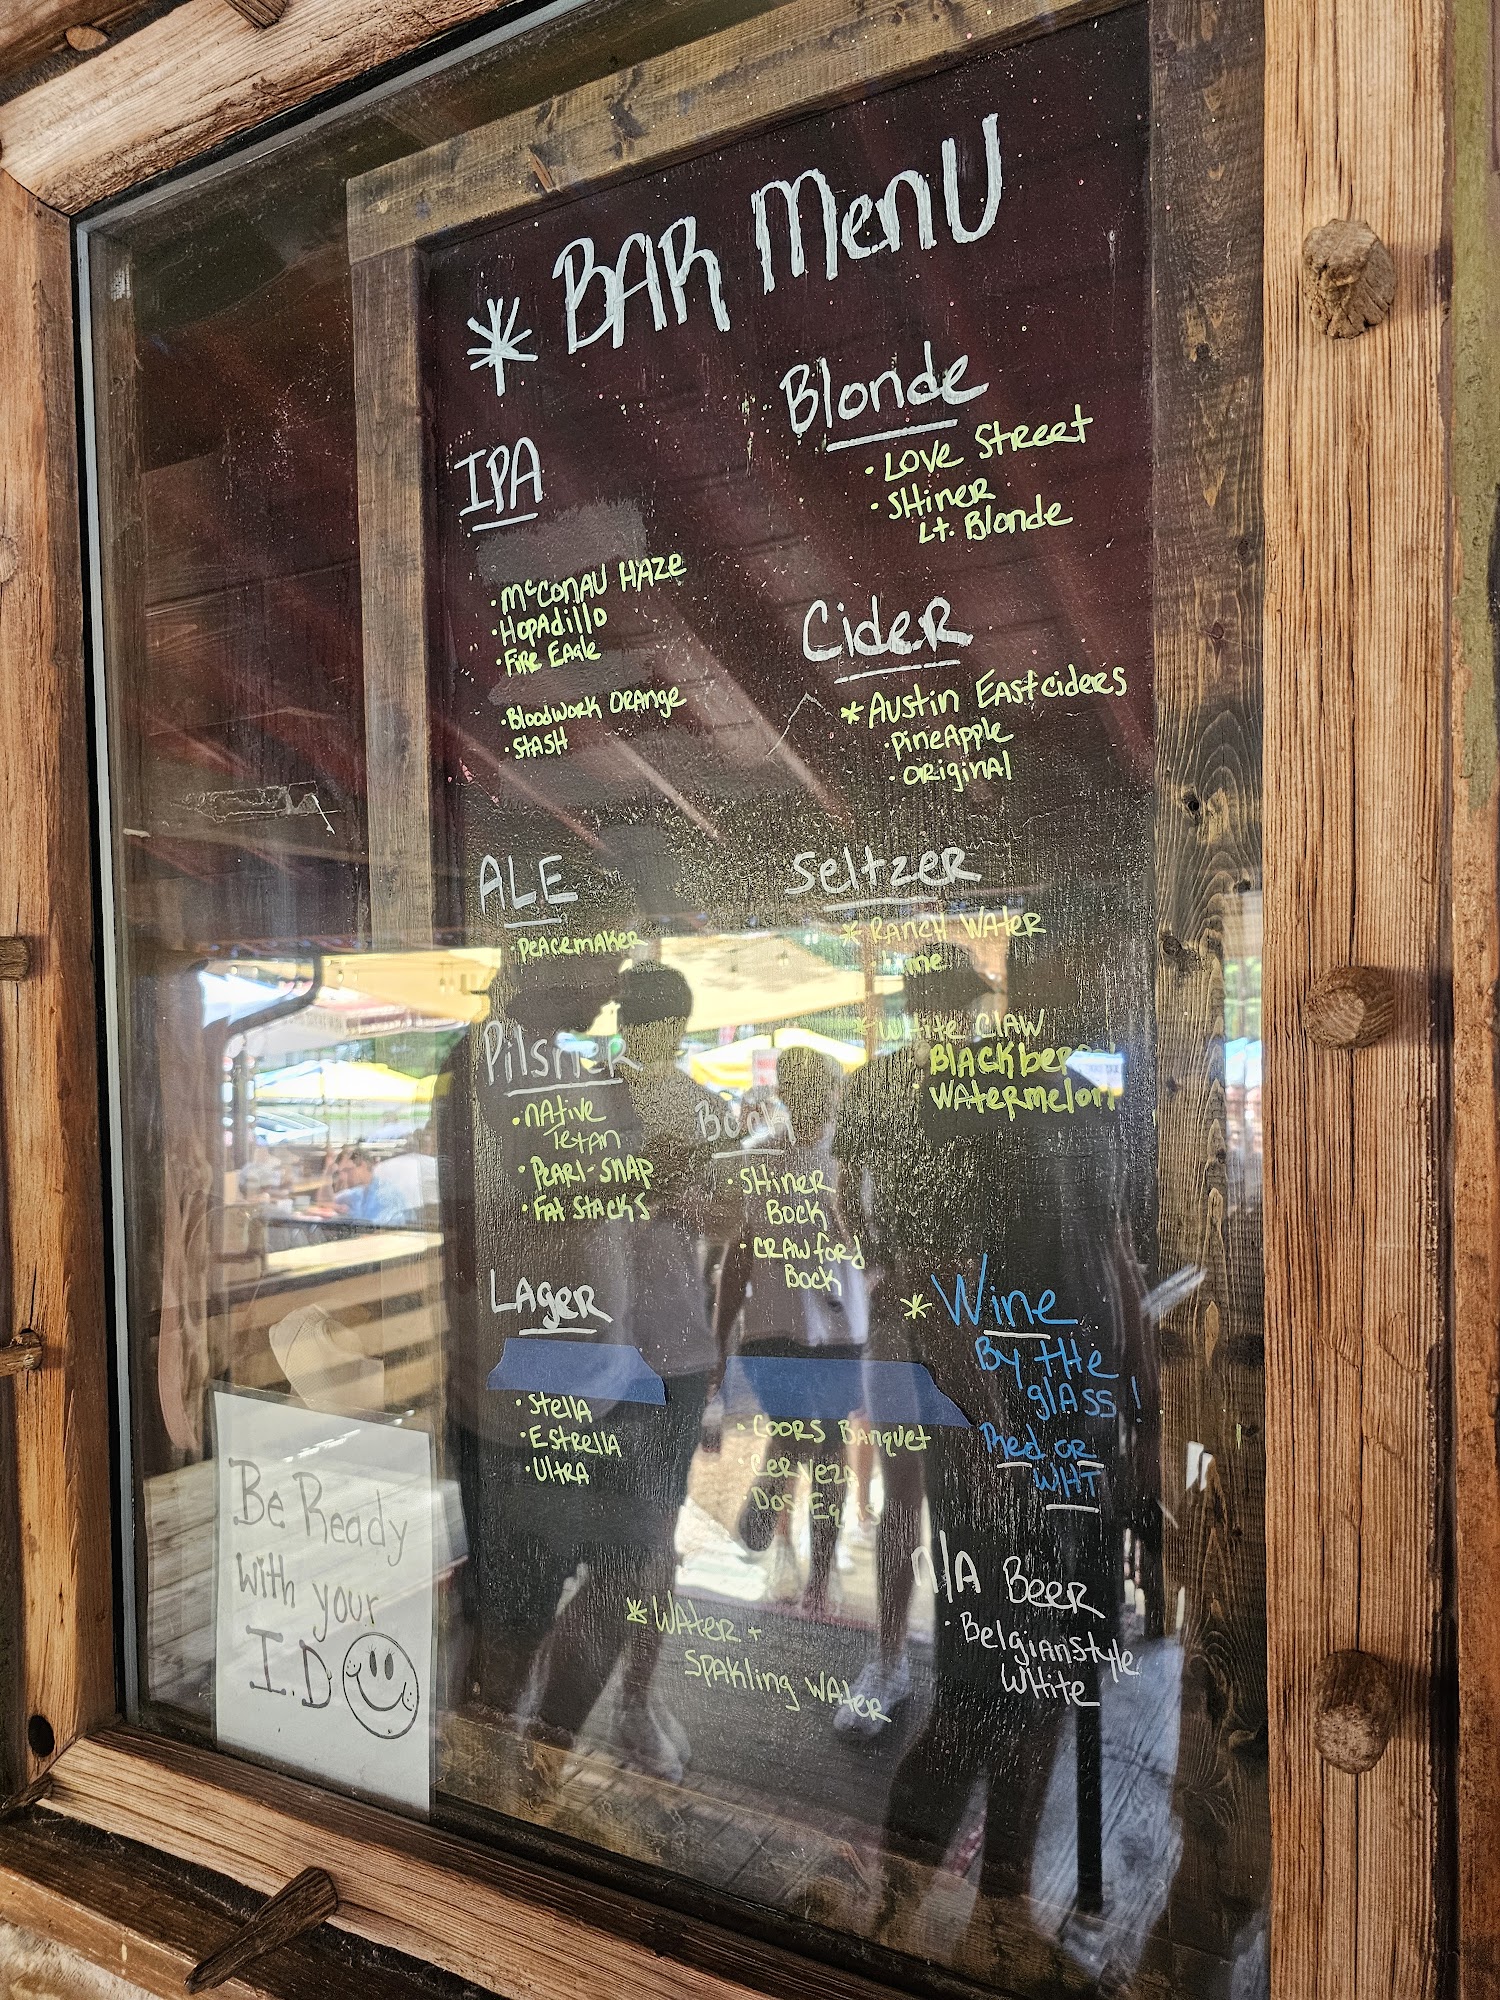 * BAR MenU
IPA
· McCONAU HAZE
· HOPAdillO
· FiRE EAgle
· BloodWORK ORAnge
· STASH
Blonde
· LOVE STREET
· SHineR
Lt. Blonde
CideR
* AUStin EAStciders
· PineApple
· ORiginAl
ALE
· PeAcemAkeR
SeltzeR
* RAncH WAteR
* WHite ClAW
· WAteRmelon
PilsneR
· nAtive
TexAn
· PeARl-SnAP
· FAt StAckS
Bock
· SHineR
Bock
· CRAWfoRd
Bock
LAgeR
· Stella
· EStRellA
· UltRA
· COORS BAnquet
* Wine
By tHe
glASS!
Red OR
WHT
n/A BeeR
· BelgiAnStyle
WHite
* WAteR +
SpAkling WAteR
Be Ready
with your
I.D